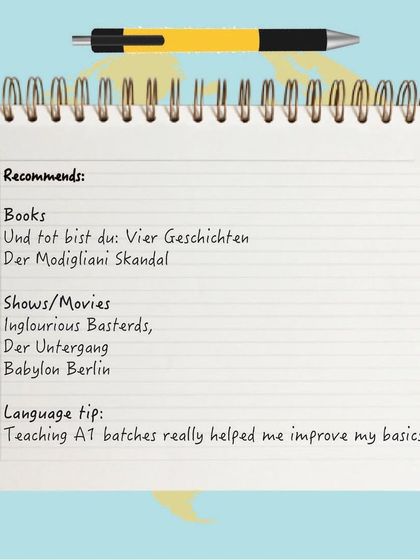 Recommends:
Books
Und tot bist du: Vier Geschichten
Der Modigliani Skandal
Shows/Movies
Inglourious Basterds,
Der Untergang
Babylon Berlin
Language tip:
Teaching A1 batches really helped me improve my basics